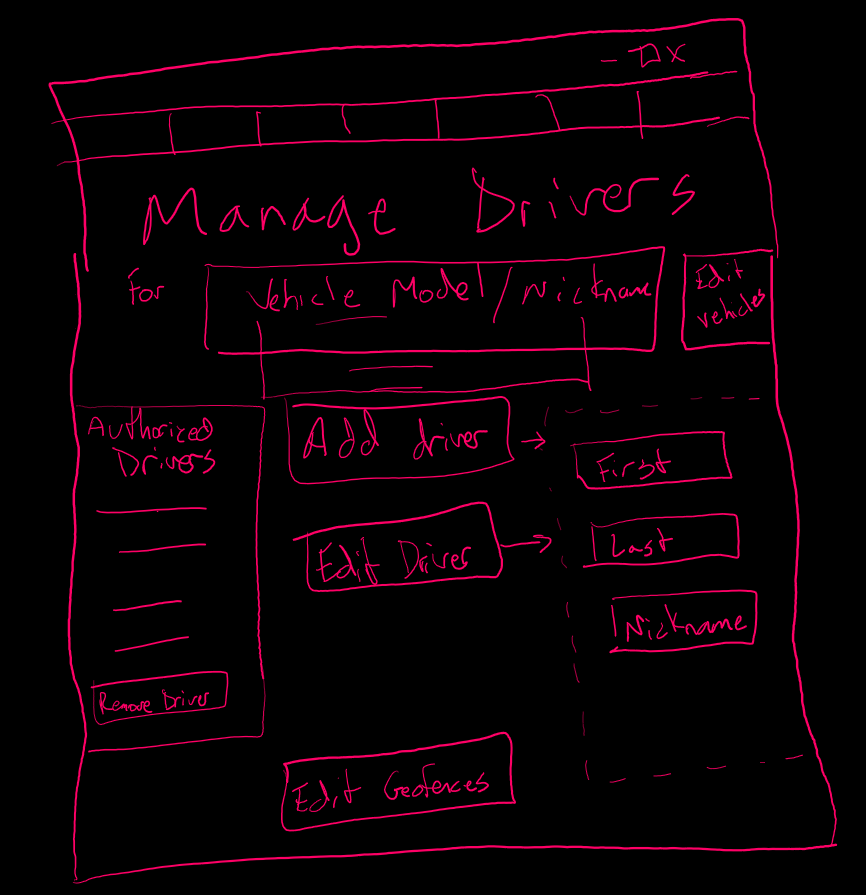 Manage Drivers
For Vehicle Model/Nickname
Edit
vehicles
Authorized
Drivers
Add driver
First
Edit Driver
Last
Nickname
Remove Driver
Edit Geofences